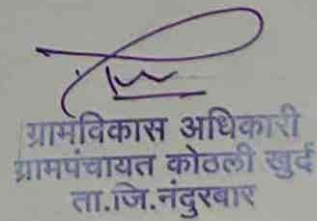 ग्रामविकास अधिकारी
ग्रामपंचायत कोठली खुर्द
ता.जि.नंदुरबार